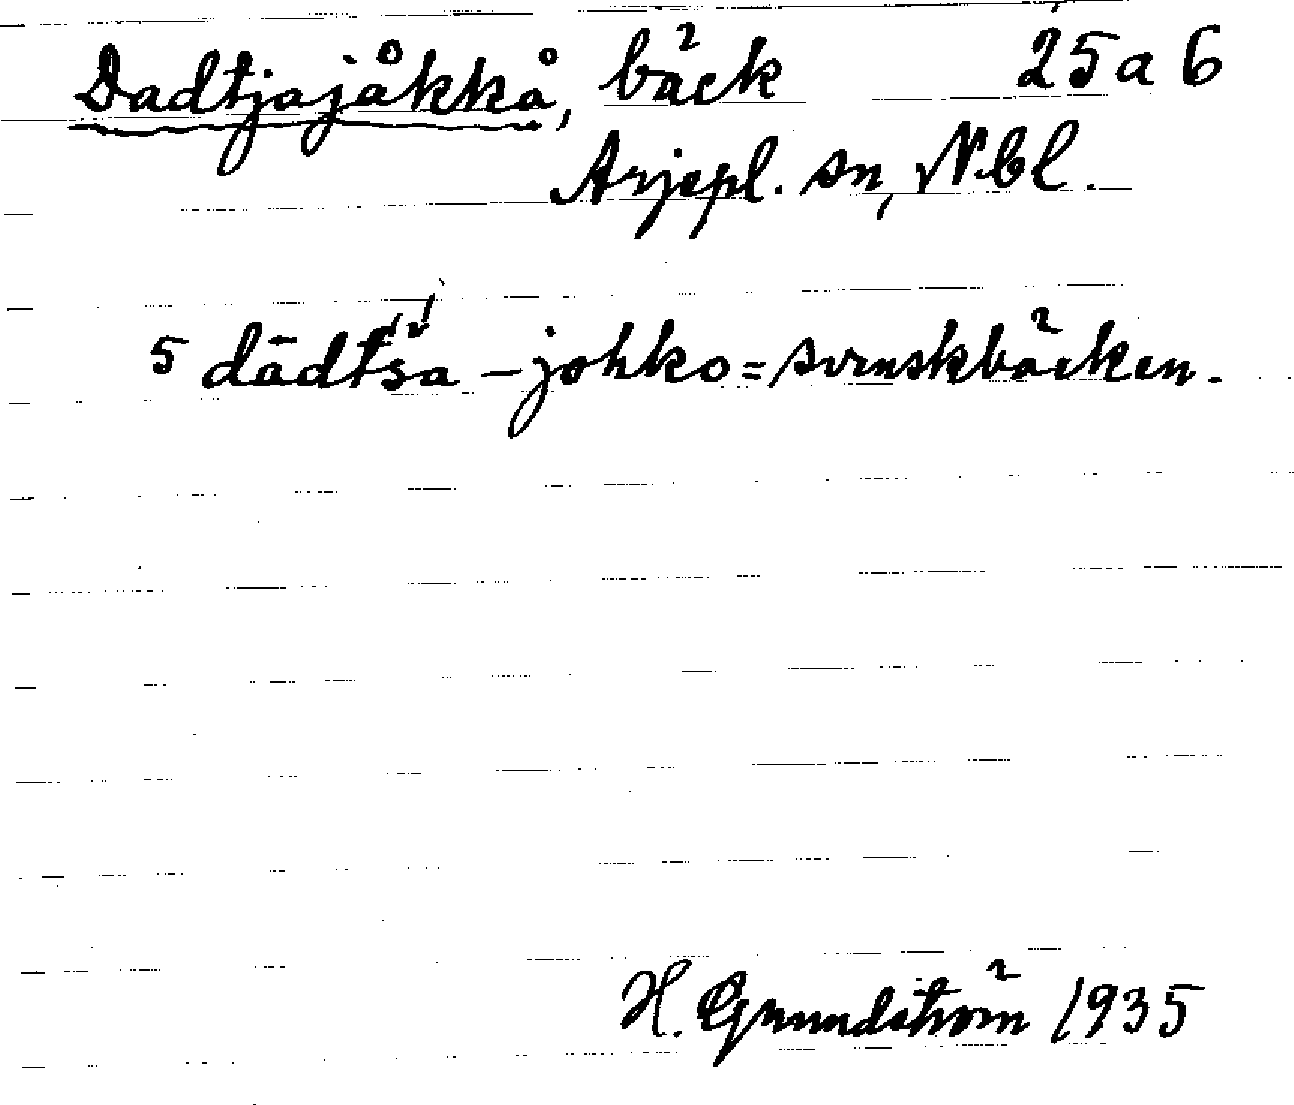 Dadtjajåkkå, bäck 25 a 6
Arjepl. sn, Nbl.
5 dādtš́a – johko = svenskbäcken.
H. Grundström 1935